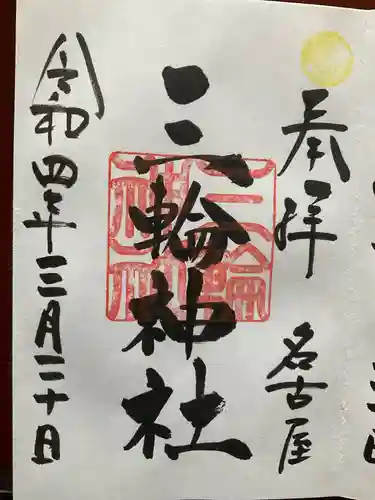 奉拝 名古屋
三輪神社
令和四年三月二十日